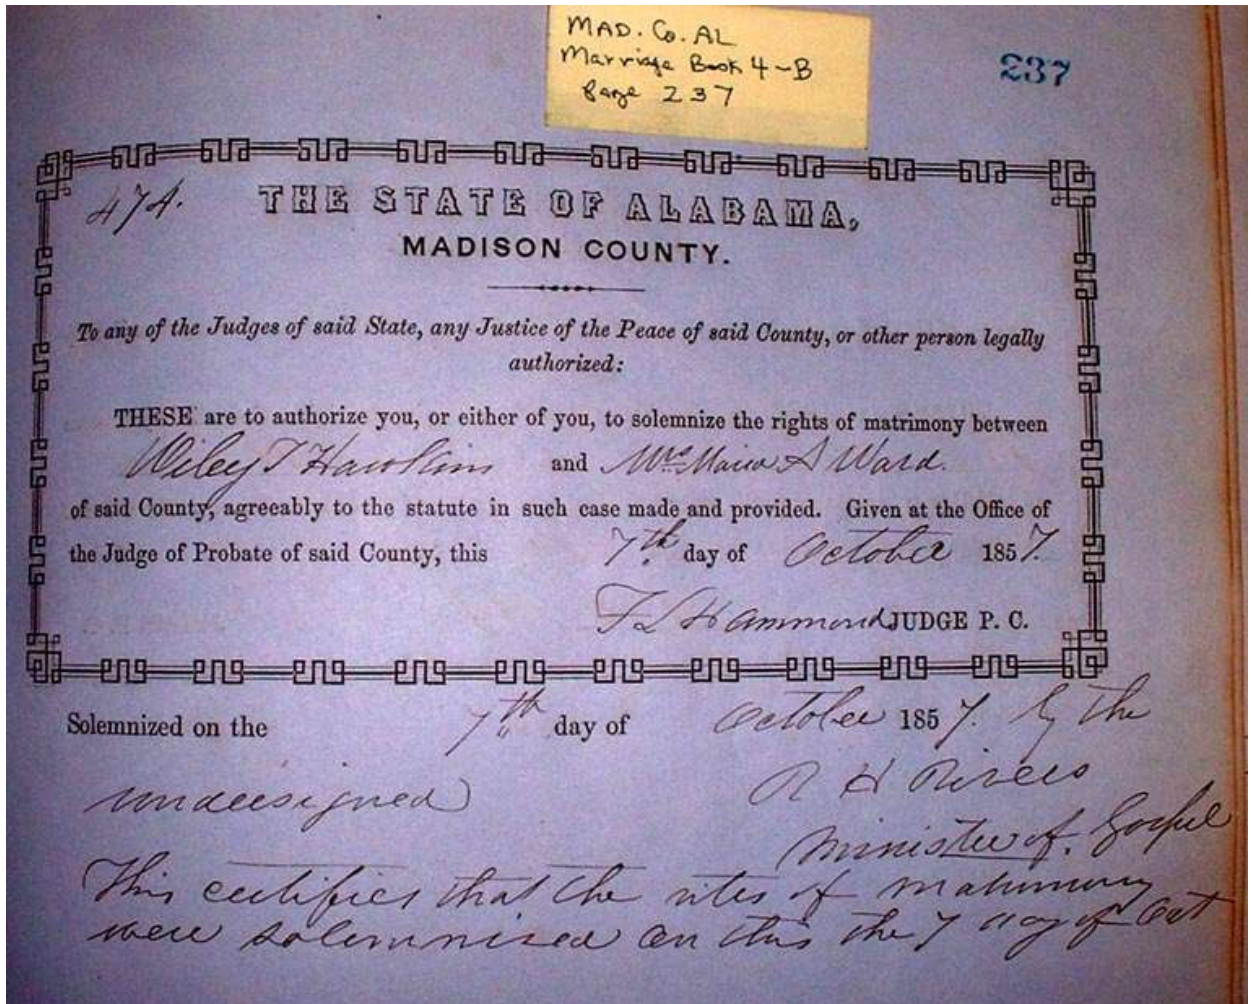 MAD. Co. AL
Marriage Book 4-B
Page 237
237
474.
THE STATE OF ALABAMA,
MADISON COUNTY.
To any of the Judges of said State, any Justice of the Peace of said County, or other person legally
authorized:
THESE are to authorize you, or either of you, to solemnize the rights of matrimony between
Wiley T Hawkins and Mrs Maria A Ward.
of said County, agreeably to the statute in such case made and provided. Given at the Office of
the Judge of Probate of said County, this 7th day of October 1857.
F L Hammond JUDGE P. C.
Solemnized on the 7th day of October 1857. by the
undersigned R H Rivers
Minister of Gospel
This certifies that the rites of matrimony
were solemnised on this the 7 day of Oct